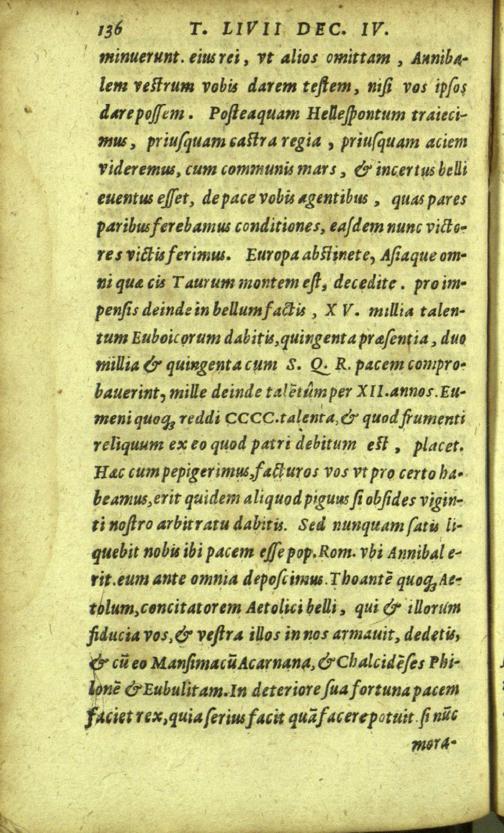 136 T. LIVII DEC. IV.
minuerunt. eius rei, vt alios omittam, Anniba-
lem vestrum vobis darem testem, nisi vos ipsos
dare possem. Posteaquam Hellespontum traieci-
mus, priusquam castra regia, priusquam aciem
videremus, cum communis mars, & incertus belli
euentus esset, de pace vobis agentibus, quas pares
paribus ferebamus conditiones, easdem nunc victo-
res victis ferimus. Europa abstinete, Asiaque om-
ni quæ cis Taurum montem est, decedite. pro im-
pensis deinde in bellum factis, XV. millia talen-
tum Euboicorum dabitis, quingenta præsentia, duo
millia & quingenta cum S. Q. R. pacem compro-
bauerint, mille deinde talētûm per XII. annos. Eu-
meni quoq; reddi CCCC. talenta, & quod frumenti
reliquum ex eo quod patri debitum est, placet.
Hæc cum pepigerimus, facturos vos vt pro certo ha-
beamus, erit quidem aliquod piguus si obsides vigin-
ti nostro arbitratu dabitis. Sed nunquam satis li-
quebit nobis ibi pacem esse pop. Rom. vbi Annibal e-
rit. eum ante omnia deposcimus. Thoantē quoq; Ae-
tolum, concitatorem Aetolici belli, qui & illorum
fiducia vos, & vestra illos in nos armauit, dedetis,
& cū eo Mansimacū Acarnana, & Chalcidēses Phi-
lonē & Eubulitam. In deteriore sua fortuna pacem
faciet rex, quia serius facit quā facere potuit. si nūc
mora-